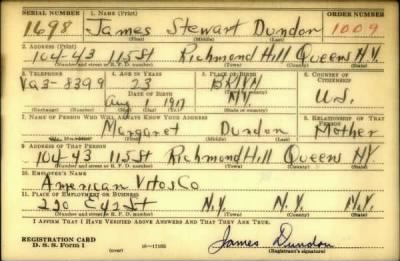 SERIAL NUMBER 1. NAME (Print) ORDER NUMBER
1698 James Stewart Dundon 1009
(First) (Middle) (Last)
2. ADDRESS (Print)
104-43 115 St Richmond Hill Queens N.Y.
(Number and street or R. F. D. number) (Town) (County) (State)
3. TELEPHONE 4. AGE IN YEARS 5. PLACE OF BIRTH 6. COUNTRY OF CITIZENSHIP
Va3-8399 23 BKLYN
DATE OF BIRTH
Aug 1 1917 N.Y. U.S.
(Exchange) (Number) (Mo.) (Day) (Yr.) (State or country)
7. NAME OF PERSON WHO WILL ALWAYS KNOW YOUR ADDRESS 8. RELATIONSHIP OF THAT PERSON
Margaret Dundon Mother
(Mr., Mrs., Miss) (First) (Middle) (Last)
9. ADDRESS OF THAT PERSON
104-43 115 St Richmond Hill Queens NY
(Number and street or R. F. D. number) (Town) (County) (State)
10. EMPLOYER'S NAME
American Co
11. PLACE OF EMPLOYMENT OR BUSINESS
220 E 42 St N.Y. N.Y. N.Y.
(Number and street or R. F. D. number) (Town) (County) (State)
I AFFIRM THAT I HAVE VERIFIED ABOVE ANSWERS AND THAT THEY ARE TRUE.
REGISTRATION CARD
D. S. S. Form 1 James Dundon
(Registrant's signature)